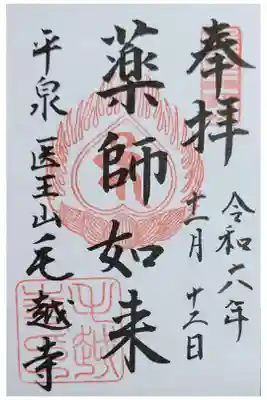 奉拝
令和六年
十一月廿六日
薬師如来
平泉 医王山毛越寺